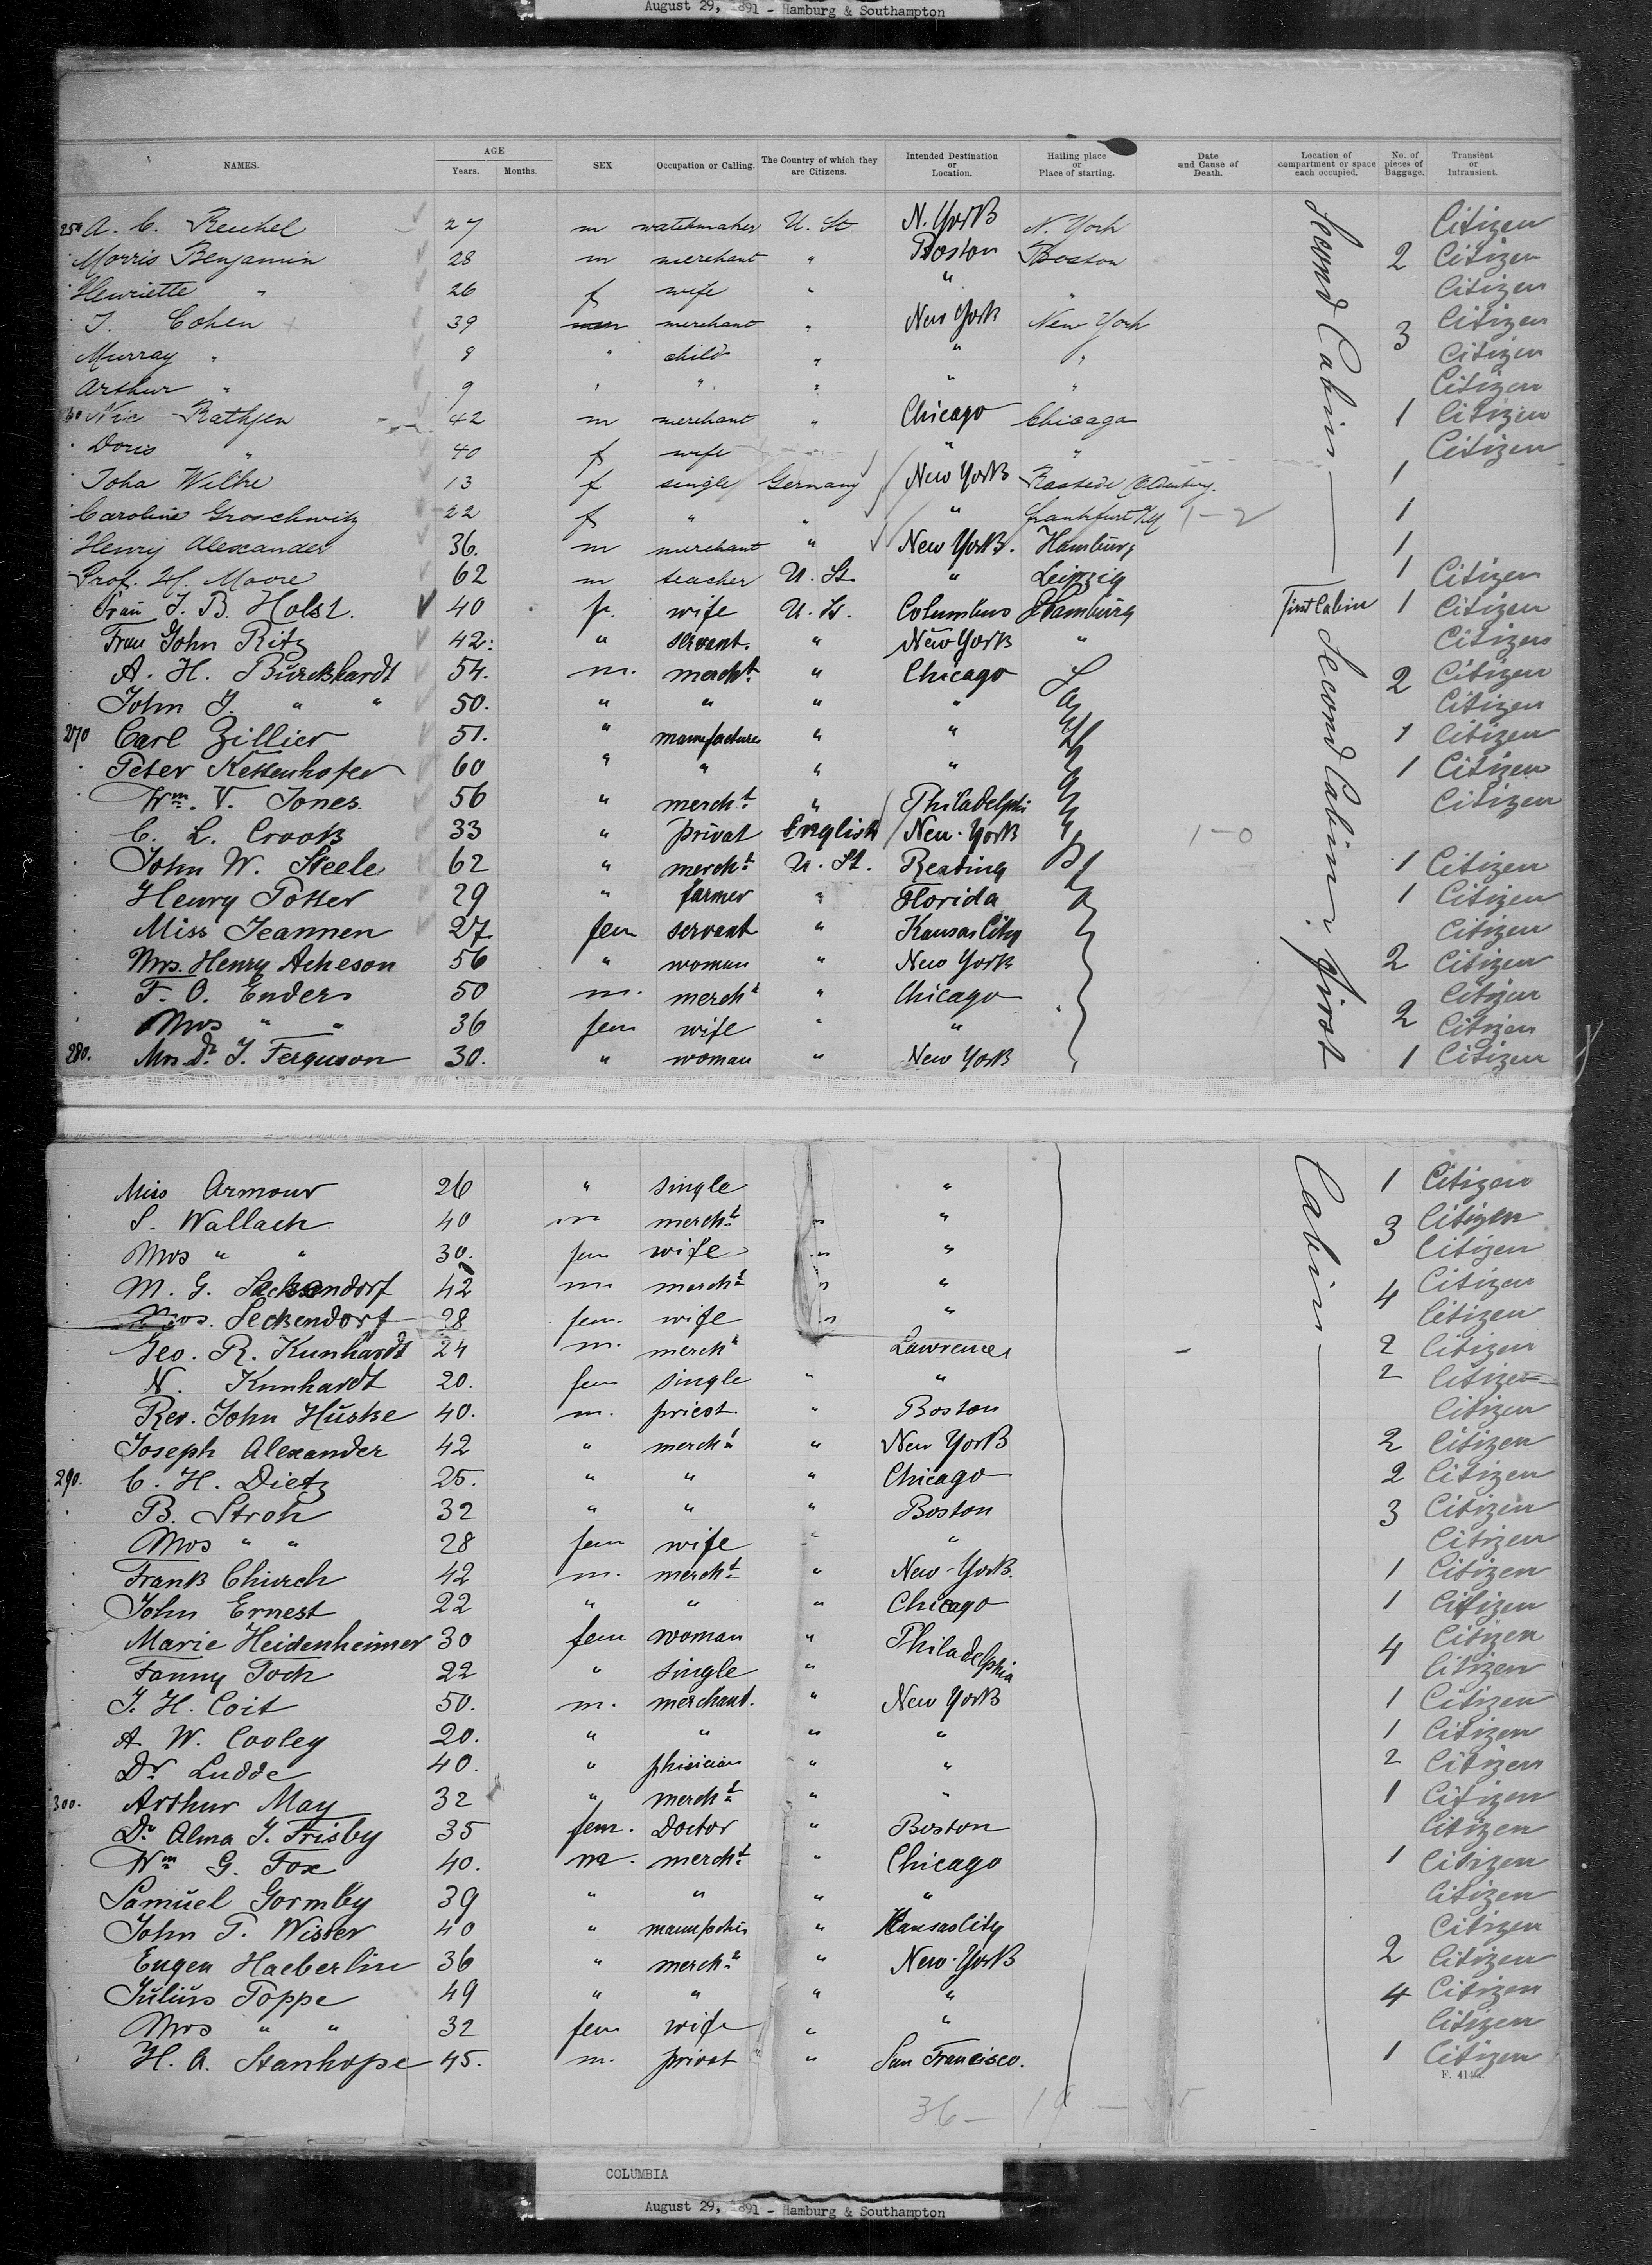 August 29, 1891 - Hamburg & Southampton
NAMES. AGE Years. Months. SEX Occupation or Calling. The Country of which they are Citizens. Intended Destination or Location. Hailing place or Place of starting. Date and Cause of Death. Location of compartment or space each occupied. No. of pieces of Baggage. Transient or Intransient.
A. C. Reuchel 27 m watchmaker U. St N. York N. York Citizen
Morris Benjamin 28 m merchant " Boston Boston 2 Citizen
Henriette " 26 f wife " " " Citizen
J. Cohen 39 merchant " New York New York 3 Citizen
Murray " 8 " child " " " Citizen
Arthur " 9 " " " " " Citizen
Nic Rathjen 42 m merchant " Chicago Chicago 1 Citizen
Doris " 40 f wife " " Citizen
Joha Wilke 13 f single Germany New York Rastede Oldenburg. 1
Caroline Groschwitz 22 f " " " Frankfurt 1-2 1
Henry Alexander 36. m merchant " New York. Hamburg 1
Prof. H. Moore 62 m teacher U. St. " Leipzig 1 Citizen
Frau J. B. Holst. 40 f. wife U. St. Columbus Hamburg First Cabin 1 Citizen
Frau John Ritz 42. " servant. " New York " Citizen
A. H. Burckhardt 54. m. mercht. " Chicago 2 Citizen
John J. " " 50. " " " " Citizen
270 Carl Zillier 51. " manufacturer " " 1 Citizen
Peter Kettenhofen 60 " " " " 1 Citizen
Wm. V. Jones. 56 " mercht. " Philadelphi Citizen
C. L. Crook 33 " privat English New-York 1-0
John W. Steele 62 " mercht. U. St. Reading 1 Citizen
Henry Potter 29 " farmer " Florida 1 Citizen
Miss Jeannen 27 fem servant " Kansas City Citizen
Mrs. Henry Acheson 56 " woman " New York 2 Citizen
F. O. Enders 50 m. mercht " Chicago Citizen
Mrs " " 36 fem wife " " 2 Citizen
280. Mrs. Dr. J. Ferguson 30. " woman " New York 1 Citizen
Second Cabin
Second Cabin. First
Southampton
Miss Armour 26 " single " 1 Citizen
S. Wallach 40 m mercht. " " 3 Citizen
Mrs " " 30. fem wife " " Citizen
M. G. Seckendorf 42 m. mercht. " " 4 Citizen
Mrs. Seckendorf 28 fem. wife " " Citizen
Geo. R. Kunhardt 24 m. mercht Lawrence 2 Citizen
N. Kunhardt 20. fem single " " 2 Citizen
Rev. John Huske 40. m. priest. " Boston Citizen
Joseph Alexander 42 " mercht. " New York 2 Citizen
290. C. H. Dietz 25. " " " Chicago 2 Citizen
B. Stroh 32 " " " Boston 3 Citizen
Mrs " " 28 fem wife " " Citizen
Frank Church 42 m. mercht. " New-York. 1 Citizen
John Ernest 22 " " " Chicago 1 Citizen
Marie Heidenheimer 30 fem woman " Philadelphia 4 Citizen
Fanny Toch 22 " single " Citizen
J. H. Coit 50. m. merchant. " New York 1 Citizen
A W. Cooley 20. " " " " 1 Citizen
Dr. Ludde 40. " phisician " " 2 Citizen
300. Arthur May 32 " mercht. " " 1 Citizen
Dr. Alma J. Frisby 35 fem. Doctor " Boston Citizen
Wm G. Fox 40. m. mercht. " Chicago 1 Citizen
Samuel Gormby 39 " " " " Citizen
John P. Wisser 40 " " Kansas City Citizen
Eugen Haeberlin 36 " mercht. " New-York 2 Citizen
Julius Poppe 49 " " " " 4 Citizen
Mrs " " 32 fem wife " " Citizen
H. A. Stanhope 45. m. privat " San Francisco. 1 Citizen
Cabin
36-
COLUMBIA
August 29, 1891 - Hamburg & Southampton